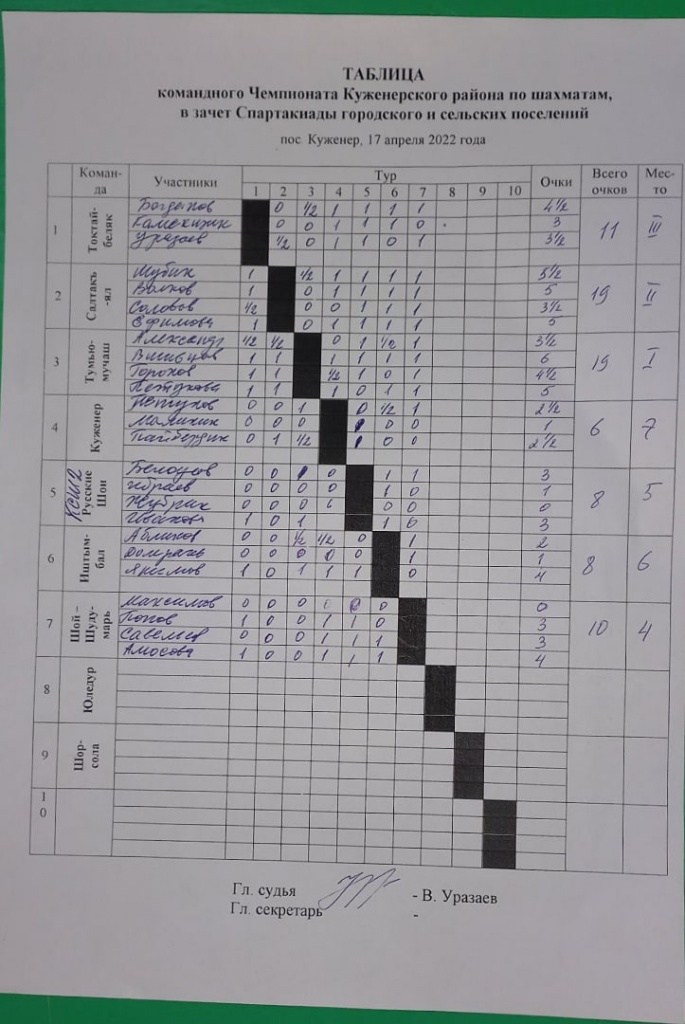 ТАБЛИЦА
командного Чемпионата Куженерского района по шахматам,
в зачет Спартакиады городского и сельских поселений
пос. Куженер, 17 апреля 2022 года
Коман-да Участники Тур 1 2 3 4 5 6 7 8 9 10 Очки Всего очков Мес-то
1 Токтай-беляк 11 III
Богданов 0 1/2 1 1 1 1 4 1/2
0 0 1 1 1 0 3
Уразаев 1/2 0 1 1 0 1 3 1/2
2 Салтакъ-ял 19 II
Шубин 1 1/2 1 1 1 1 5 1/2
Волков 1 0 1 1 1 1 5
Соловьв 1/2 0 0 1 1 1 3 1/2
Ефимова 1 0 1 1 1 1 5
3 Тумью-мучаш 19 I
Александр 1/2 1/2 0 1 1/2 1 3 1/2
1 1 1 1 1 1 6
Горохов 1 1 1/2 1 0 1 4 1/2
Петухова 1 1 1 0 1 1 5
4 Куженер 6 7
Петухов 0 0 1 0 1/2 1 2 1/2
0 0 0 1 0 0 1
0 1 1/2 1 0 0 2 1/2
5 КСШ2 Русские Шои 8 5
Белоусов 0 0 1 0 1 1 3
Ибраев 0 0 0 0 1 0 1
0 0 0 0 0 0
Иванова 1 0 1 1 0 3
6 Иштым-бал 8 6
0 0 1/2 1/2 0 1 2
0 0 0 0 0 1 1
1 0 1 1 1 0 4
7 Шой – Шуду-марь 10 4
Максимов 0 0 0 0 0 0 0
Попов 1 0 0 1 1 0 3
Савельев 0 0 0 1 1 1 3
Амосова 1 0 0 1 1 1 4
8 Юледур
9 Шор-сола
10
Гл. судья - В. Уразаев
Гл. секретарь -